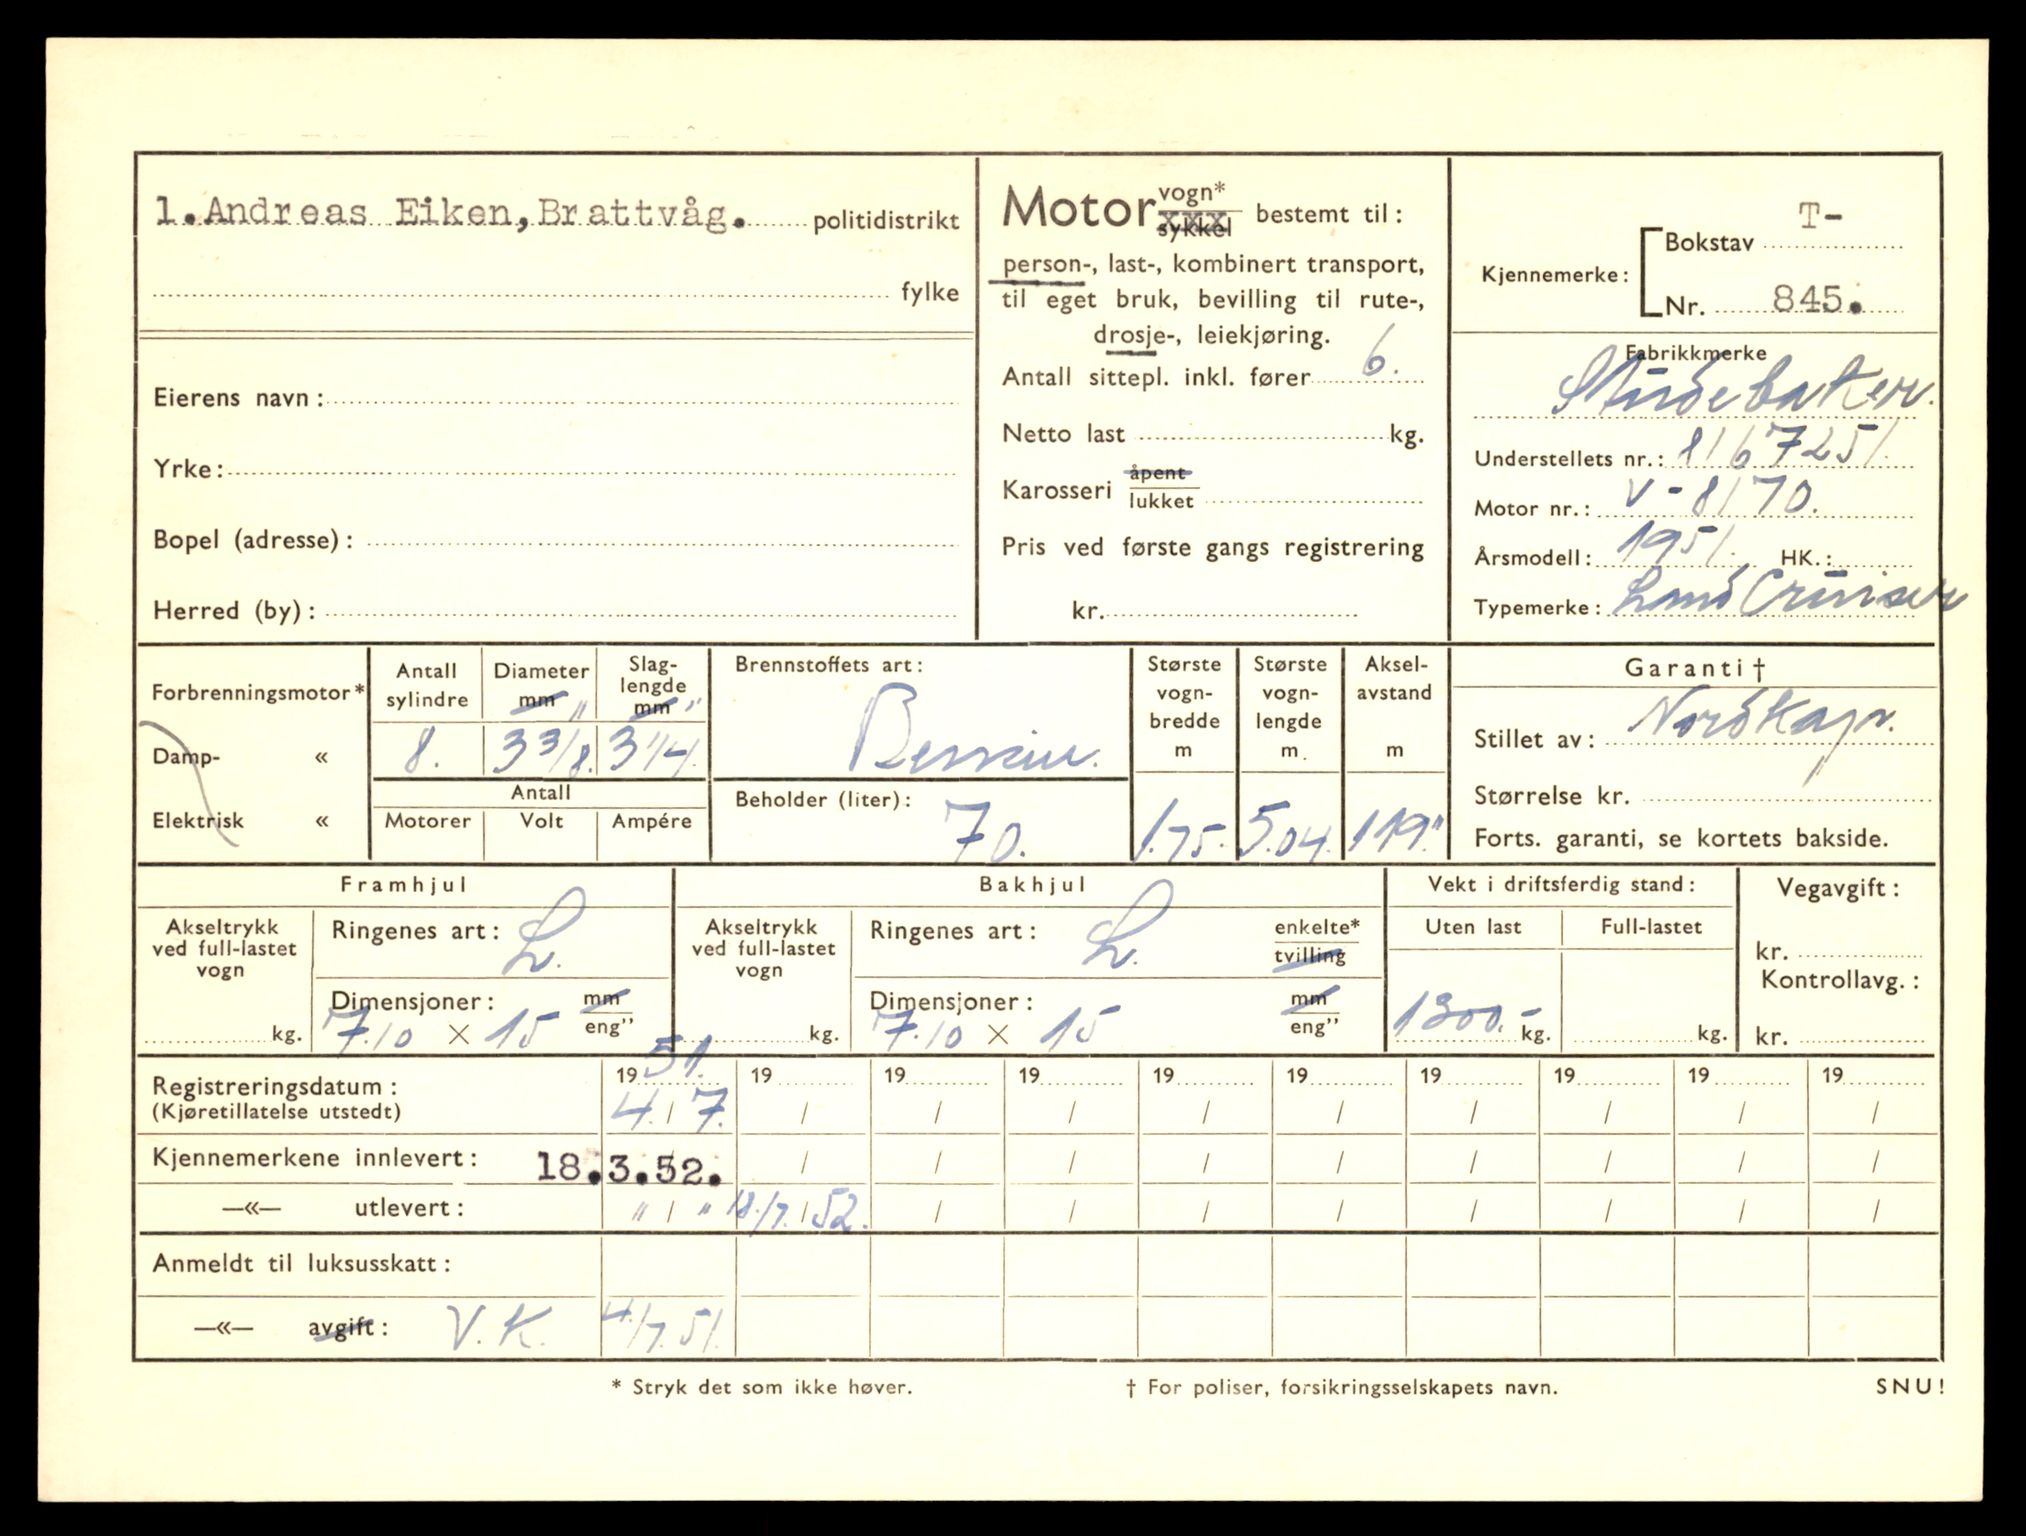 1. Andreas Eiken, Brattvåg. politidistrikt
fylke
Eierens navn:
Yrke:
Bopel (adresse):
Herred (by):
Motor vogn* sykkel bestemt til:
person-, last-, kombinert transport,
til eget bruk, bevilling til rute-,
drosje-, leiekjøring.
Antall sittepl. inkl. fører 6.
Netto last kg.
Karosseri åpent lukket
Pris ved første gangs registrering
kr.
Kjennemerke: Bokstav T-
Nr. 845.
Fabrikkmerke
Studebaker.
Understellets nr.: 8167251.
Motor nr.: V-8170.
Årsmodell: 1951. HK.:
Typemerke: Land Cruiser
Forbrenningsmotor*
Damp- «
Elektrisk «
Antall sylindre
8.
Diameter mm "
3 3/8.
Slag-lengde mm "
3 1/4.
Antall
Motorer Volt Ampére
Brennstoffets art:
Bensin.
Beholder (liter): 70.
Største vogn-bredde m
1.75.
Største vogn-lengde m.
5.04.
Aksel-avstand m
119."
Garanti †
Stillet av: Nordkapp.
Størrelse kr.
Forts. garanti, se kortets bakside.
Framhjul
Akseltrykk ved full-lastet vogn
kg.
Ringenes art: L.
Dimensjoner: mm eng”
7.10 × 15
Bakhjul
Akseltrykk ved full-lastet vogn
kg.
Ringenes art: L. enkelte* tvilling
Dimensjoner: mm eng”
7.10 × 15
Vekt i driftsferdig stand:
Uten last Full-lastet
1300.- kg. kg.
Vegavgift:
kr.
Kontrollavg.:
kr.
Registreringsdatum: 19 51. 19 19 19 19 19 19 19 19 19
(Kjøretillatelse utstedt) 4. / 7. / / / / / / / / /
Kjennemerkene innlevert: 18.3.52. / / / / / / / / /
—«— utlevert: " / " 18./7. / 52. / / / / / / / /
Anmeldt til luksusskatt:
—«— avgift: V. K. 4/7.51.
* Stryk det som ikke høver.
† For poliser, forsikringsselskapets navn.
SNU!